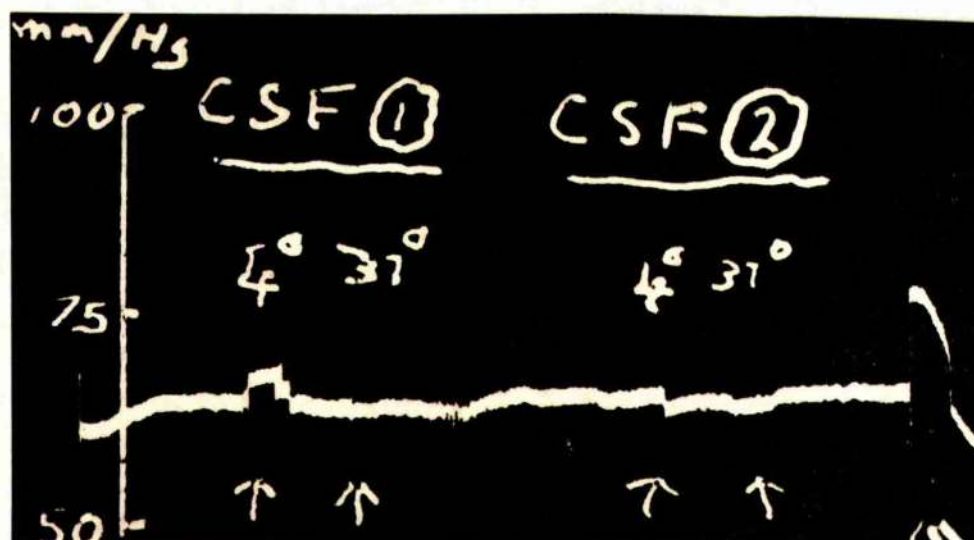 mm/Hg
100
CSF ① CSF ②
4° 37° 4° 37°
75
↑ ↑ ↑ ↑
50